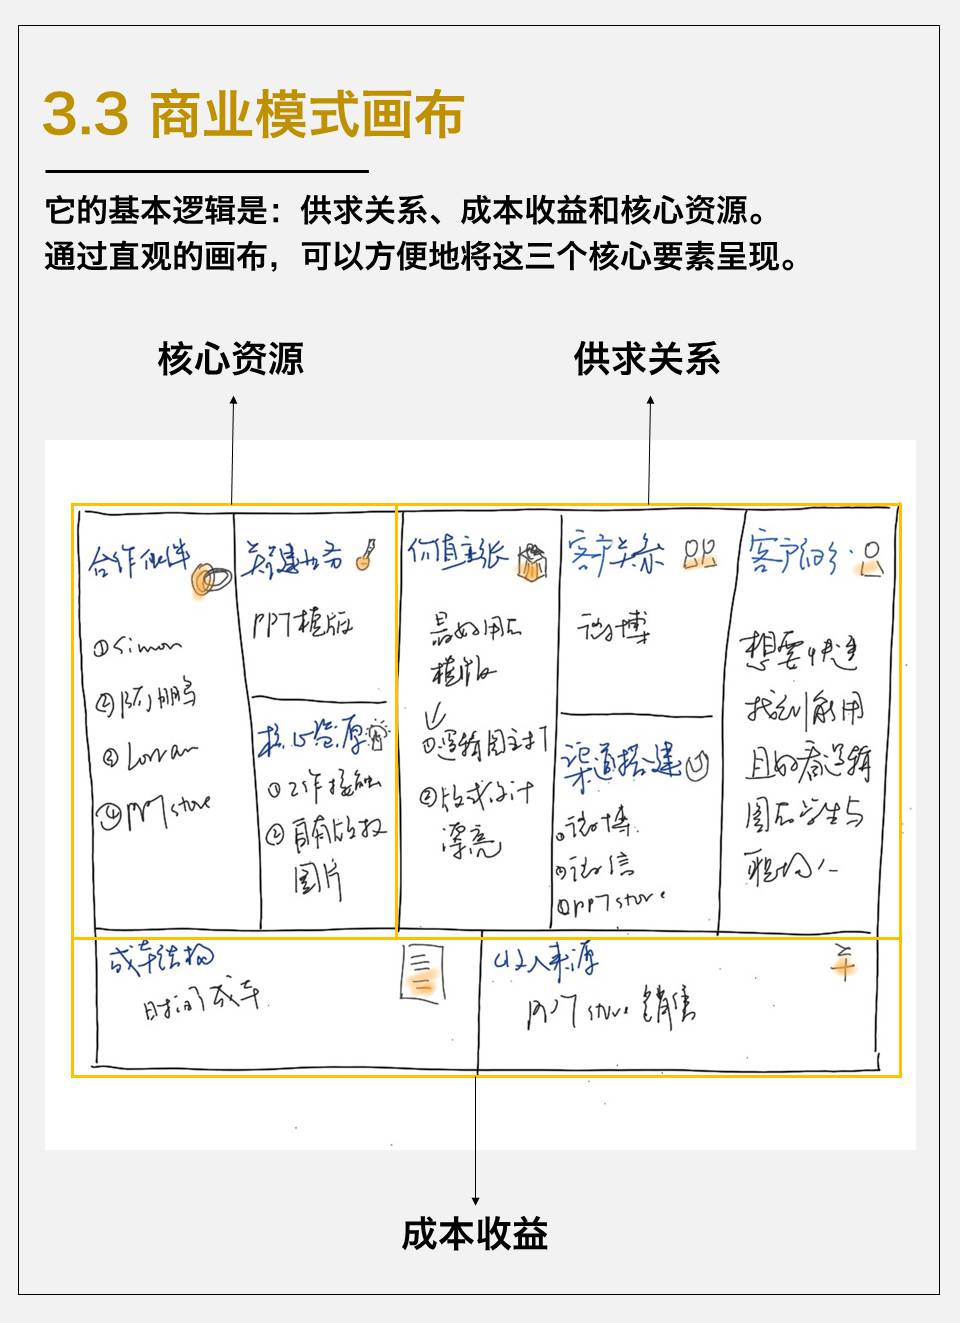 3.3 商业模式画布
它的基本逻辑是：供求关系、成本收益和核心资源。
通过直观的画布，可以方便地将这三个核心要素呈现。
核心资源
供求关系
合作伙伴
①Simon
②陈鹏
③Lorran
④PPTstore
关键业务
PPT模版
核心资源
①工作接触
②自有版权
图片
价值主张
最好用的
模版
①逻辑图主打
②版式设计
漂亮
客户关系
微博
渠道搭建
微博
微信
PPTstore
客户细分
想要快速
找到能用
且好看逻辑
图的学生与
职场人
成本结构
时间成本
收入来源
PPTstore 销售
成本收益